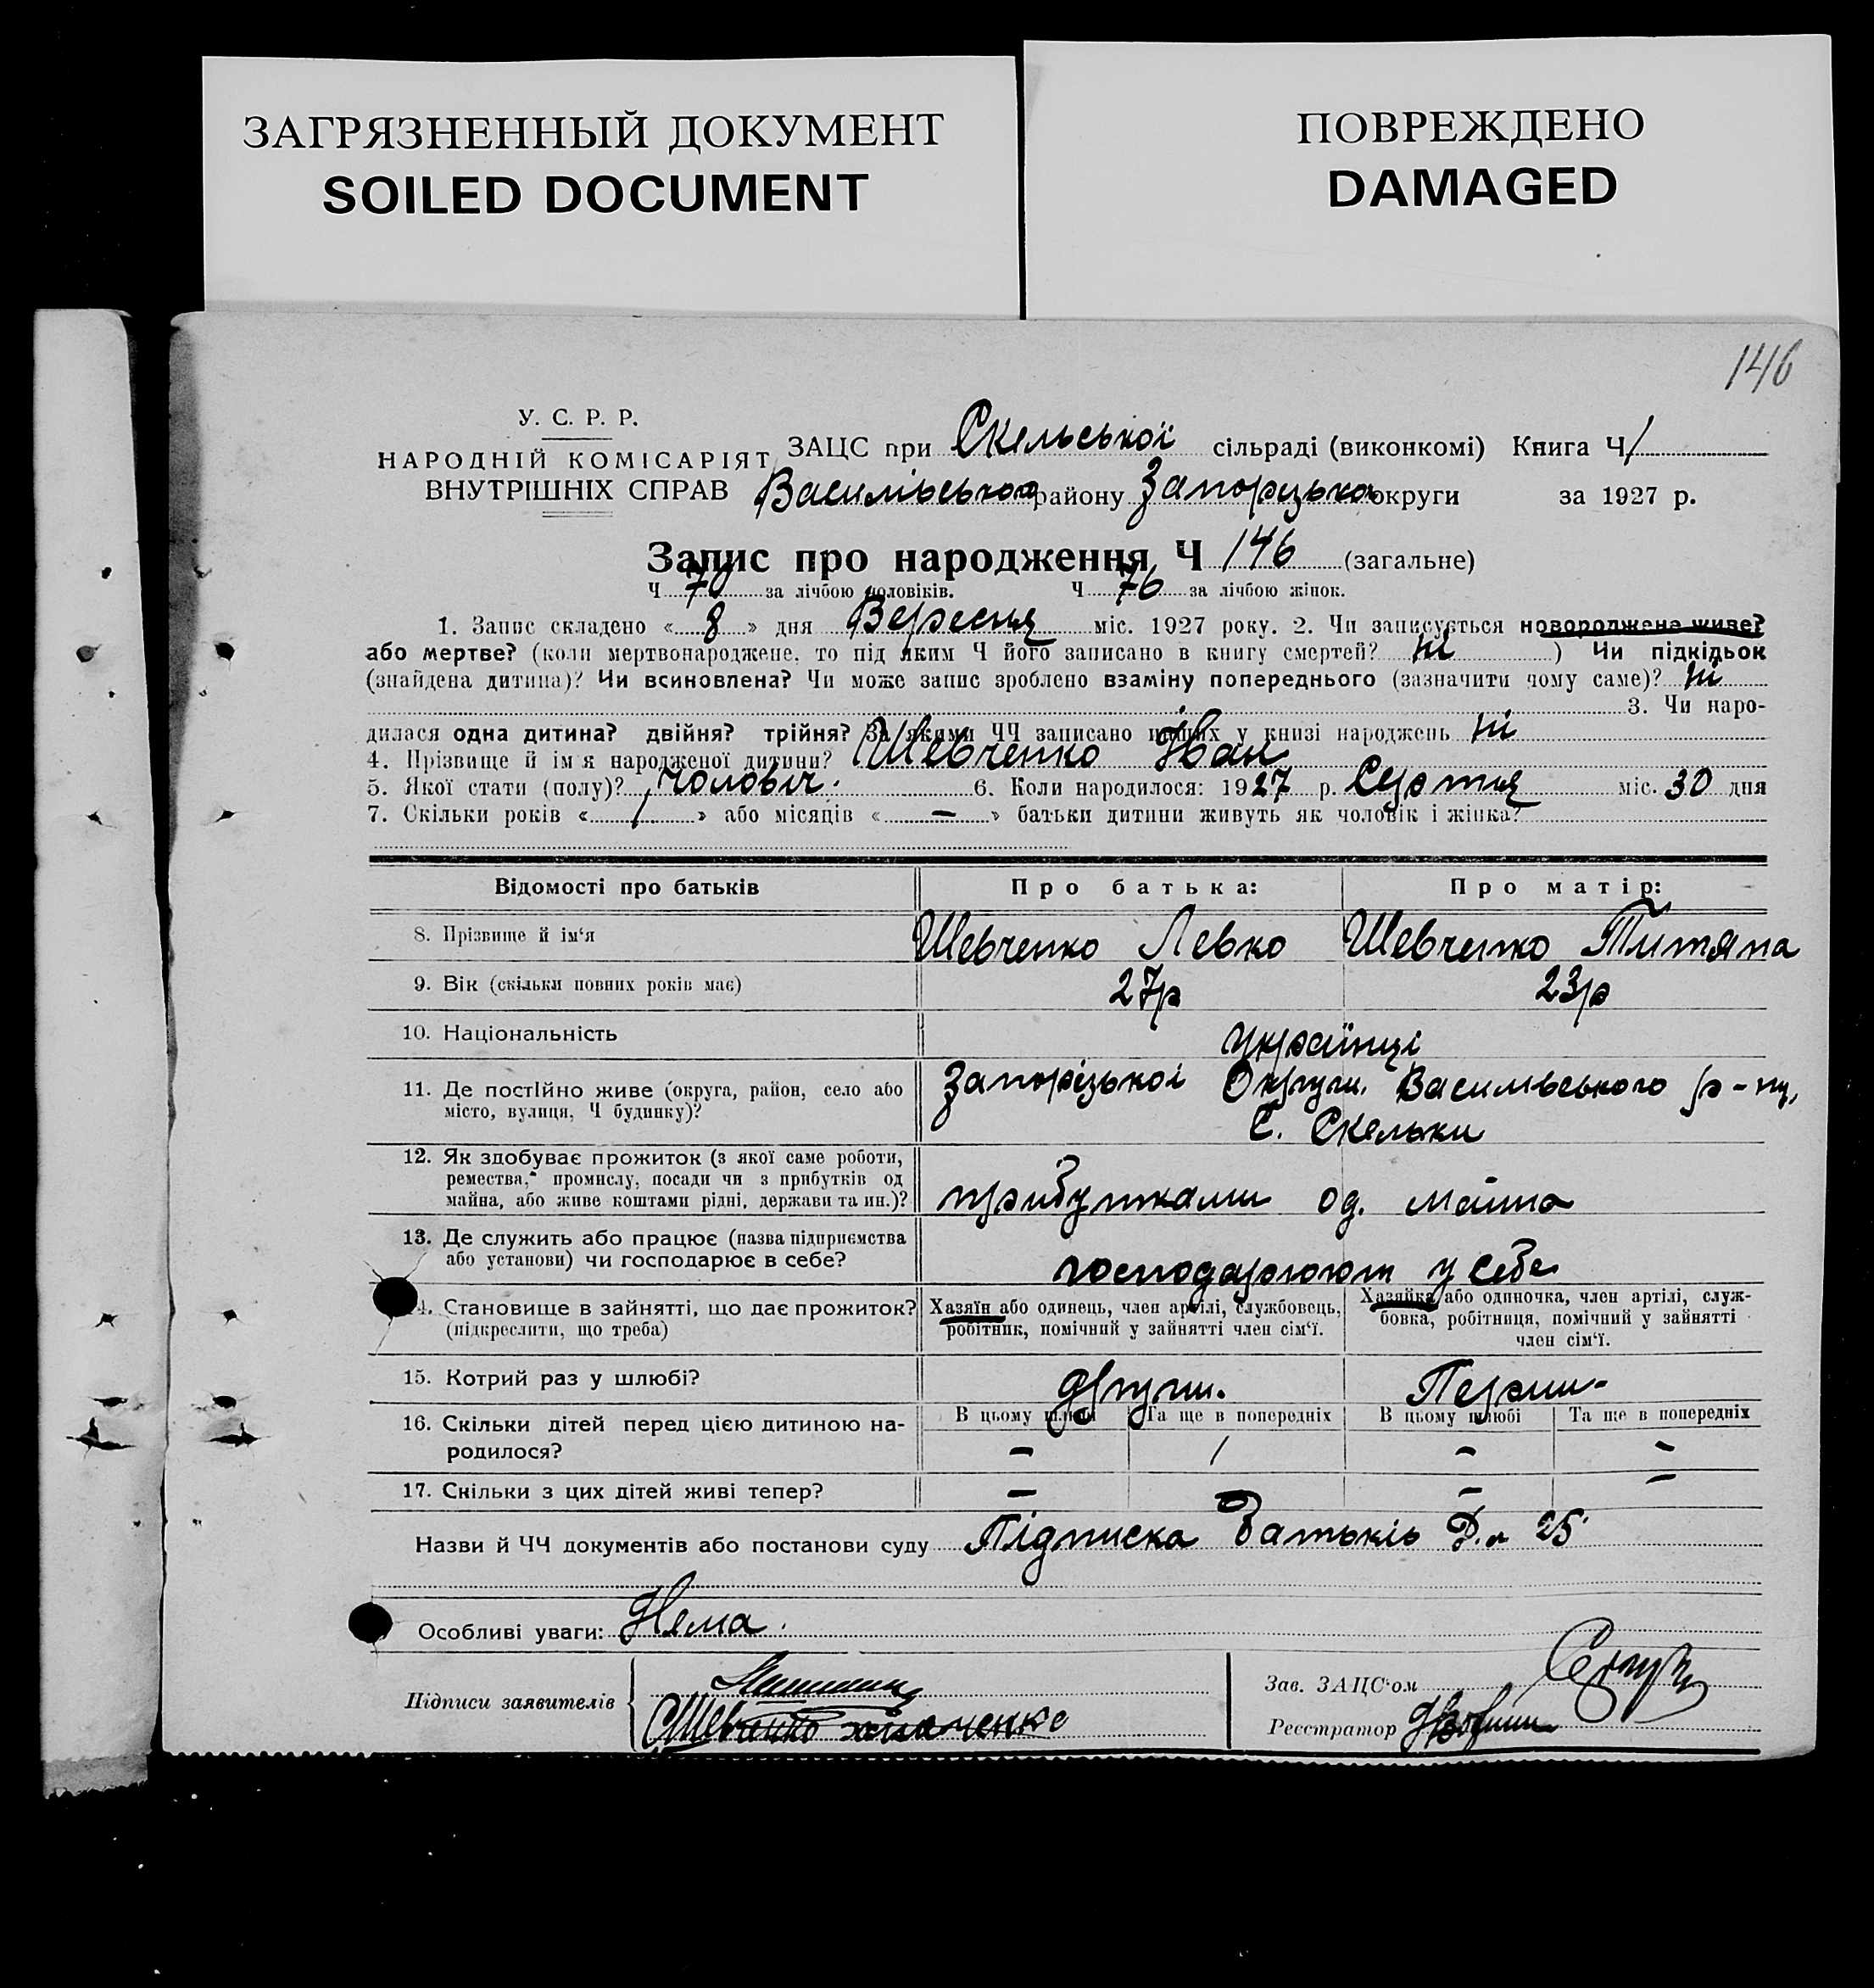 ЗАГРЯЗНЕННЫЙ ДОКУМЕНТ
SOILED DOCUMENT
ПОВРЕЖДЕНО
DAMAGED
146
У. С. Р. Р.
НАРОДНІЙ КОМІСАРІЯТ
ВНУТРІШНІХ СПРАВ
ЗАЦС при Скельської сільраді (виконкомі) Книга Ч 1
Василівського району Запорізької округи за 1927 р.
Запис про народження Ч 146 (загальне)
Ч 70 за лічбою чоловіків. Ч 76 за лічбою жінок.
1. Запис складено « 8 » дня Вересня міс. 1927 року. 2. Чи записується новороджене живе?
або мертве? (коли мертвонароджене, то під яким Ч його записано в книгу смертей? ні ) Чи підкідьок
(знайдена дитина)? Чи всиновлена? Чи може запис зроблено взаміну попереднього (зазначити чому саме)? ні
3. Чи наро-
дилася одна дитина? двійня? трійня? За якими ЧЧ записано інших у книзі народжень ні
4. Прізвище й ім'я народженої дитини? Шевченко Іван
5. Якої стати (полу)? чоловіч. 6. Коли народилося: 1927 р. Серпня міс. 30 дня
7. Скільки років « 1 » або місяців « — » батьки дитини живуть як чоловік і жінка?
Відомості про батьків Про батька: Про матір:
8. Прізвище й ім'я Шевченко Левко Шевченко Титяна
9. Вік (скільки повних років має) 27р 23р
10. Національність Українці
11. Де постійно живе (округа, район, село або Запорізької Округи. Василівського р-ну,
місто, вулиця, Ч будинку)? С. Скельки
12. Як здобуває прожиток (з якої саме роботи,
ремества, промислу, посади чи з прибутків од
майна, або живе коштами рідні, держави та ин.)? прибутками од. майна
13. Де служить або працює (назва підприємства
або установи) чи господарює в себе? господарюют у себе
14. Становище в зайнятті, що дає прожиток? Хазяїн або одинець, член артілі, службовець, Хазяйка або одиночка, член артілі, служ-
(підкреслити, що треба) робітник, помічний у зайнятті член сім'ї. бовка, робітниця, помічний у зайнятті
член сім'ї.
15. Котрий раз у шлюбі? други. Перши-
16. Скільки дітей перед цією дитиною на- В цьому шлюбі Та ще в попередніх В цьому шлюбі Та ще в попередніх
родилося? – 1 – –
17. Скільки з цих дітей живі тепер? – – –
Назви й ЧЧ документів або постанови суду Підписка Батьків
Особливі уваги: Нема.
Підписи заявителів
Шевченко
Зав. ЗАЦС'ом
Реєстратор